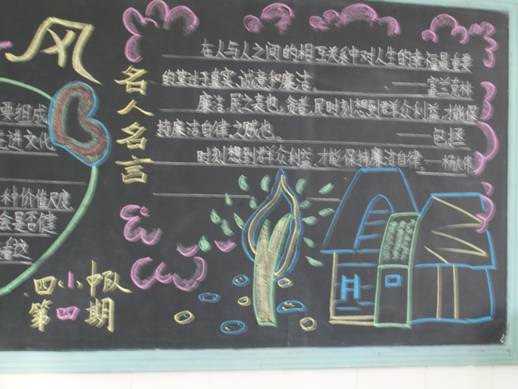 风
名人名言
在人与人之间的相互关系中对人生的幸福最重要
的莫过于真实,诚意和廉洁
——富兰克林
廉洁,民之表也,贪普,民时刻想到群众利益,才能保
持廉洁自律之贼也。
——包拯
时刻想到群众利益,才能保持廉洁自律——杨大伟
要组成
走进文化
林价值尺度
会是否健
四小中队
第四期